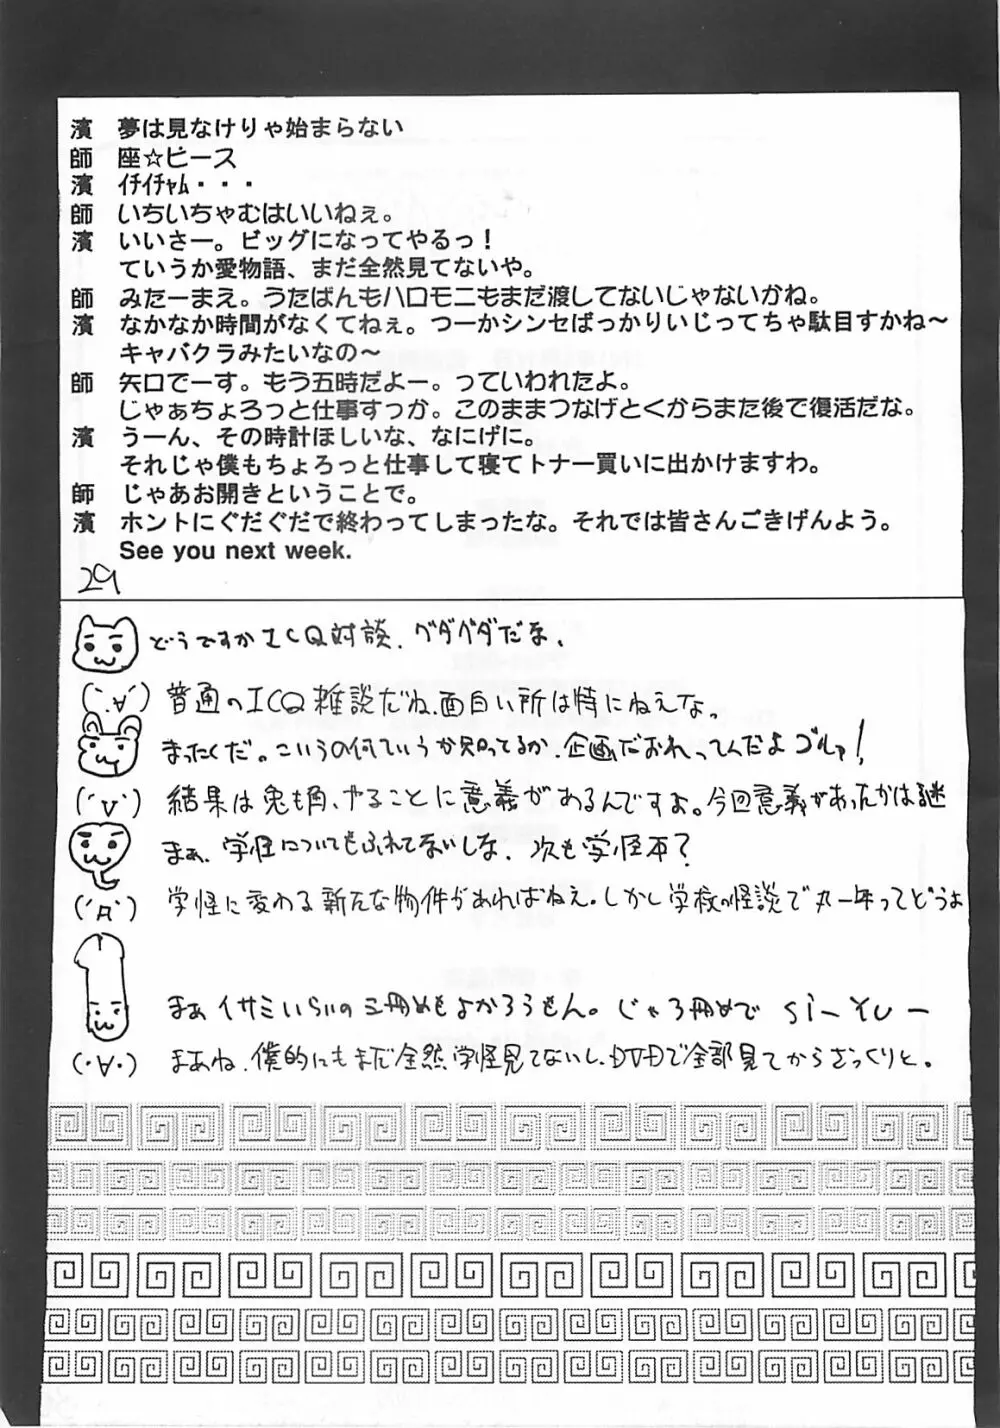 濱 夢は見なけりゃ始まらない
師 座☆ピース
濱 ｲﾁｲﾁｬﾑ・・・
師 いちいちゃむはいいねぇ。
濱 いいさー。ビッグになってやるっ！
ていうか愛物語、まだ全然見てないや。
師 みたーまえ。うたばんもハロモニもまだ渡してないじゃないかね。
濱 なかなか時間がなくてねぇ。つーかシンセばっかりいじってちゃ駄目すかね～
キャバクラみたいなの～
師 矢口でーす。もう五時だよー。っていわれたよ。
じゃぁちょろっと仕事すっか。このままつなげとくからまた後で復活だな。
濱 うーん、その時計ほしいな、なにげに。
それじゃ僕もちょろっと仕事して寝てトナー買いに出かけますわ。
師 じゃあお開きということで。
濱 ホントにぐだぐだで終わってしまったな。それでは皆さんごきげんよう。
See you next week.
29
どうですかICQ対談、グダグダだな、
(´∀`) 普通のICQ雑談だね、面白い所は特にねえな。
まったくだ。こいうの何ていうか知ってるか、企画だおれってんだよゴルァ！
(´∀`) 結果は兎も角、やることに意義があるんですよ。今回意義があったかは謎
まぁ、学怪についてもふれてないしな、次も学怪本？
(´Д`) 学怪に変わる新たな物件があればねえ。しかし学校の怪談で丸一年ってどうよ
まぁイサミいらいの三冊めもよかろうもん。じゃ3冊めで Si-Yu-
(・∀・) まあね、僕的にもまだ全然学怪見てないし、DVDで全部見てからざっくりと。